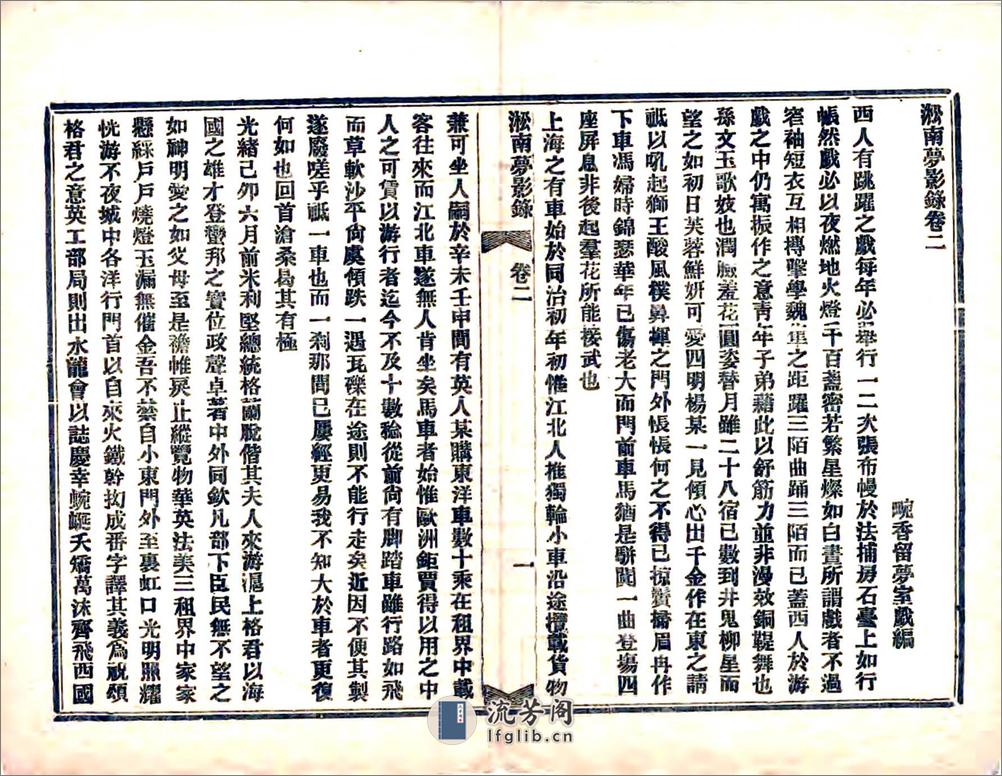 淞南夢影錄卷二
畹香留夢室戲編
西人有跳躍之戲每年必舉行一二次張布幔於法捕房石臺上如行
帳然戲必以夜燃地火燈二千百盞密若繁星燦如白晝所謂戲者不過
窄袖短衣互相搏擊學魏犨之距躍三陌曲踊三陌而已蓋西人於游
戲之中仍寓振作之意靑年子弟藉此以舒筋力並非漫效銅鞮舞也
孫文玉歌妓也潤臉羞花圓姿替月雖二十八宿已數到井鬼柳星而
望之如初日芙蓉鮮妍可愛四明楊某一見傾心出千金作在東之請
祇以吼起獅王酸風樸鼻褌之門外悵悵何之不得已掠鬢撟眉冉作
下車馮婦時錦瑟華年已傷老大而門前車馬猶是駢闐一曲登塲四
座屏息非後起羣花所能接武也
上海之有車始於同治初年初惟江北人推獨輪小車沿途攬載貨物
淞南夢影錄
卷二
一
兼可坐人嗣於辛未壬申間有英人某購東洋車數十乘在租界中載
客往來而江北車遂無人肯坐矣馬車者始惟歐洲鉅賈得以用之中
人之可賃以游行者迄今不及十數稔從前尙有脚踏車雖行路如飛
而草軟沙平尙虞傾跌一遇瓦礫在途則不能行走矣近因不便其製
遂廢嗟乎祗一車也而一刹那間已屢經更易我不知大於車者更復
何如也回首滄桑曷其有極
光緒己夘六月前米利堅總統格蘭脫偕其夫人來游滬上格君以海
國之雄才登蠻邦之寶位政聲卓著中外同欽凡部下臣民無不望之
如神明愛之如父母至是襜帷戾止縱覽物華英法美三租界中家家
懸綵戶戶燒燈玉漏無催金吾不禁自小東門外至裏虹口光明照耀
恍游不夜城中各洋行門首以自來火鐵幹抝成番字譯其義爲祝頌
格君之意英工部局則出水龍會以誌慶幸蜿蜒夭矯萬沫齊飛西國
流芳阁
lfglib.cn